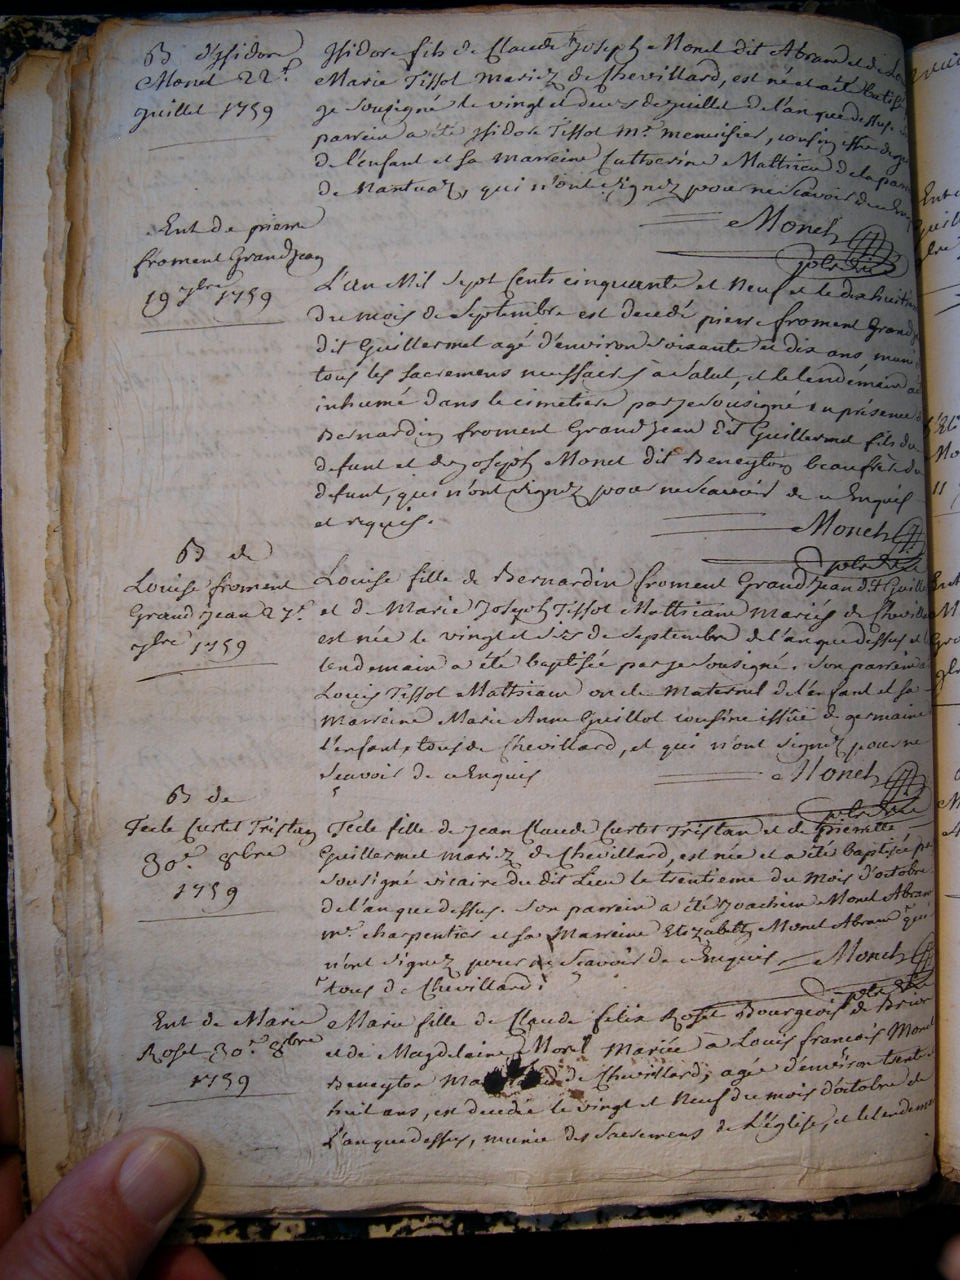 B d'Isidore
Monet 22e
Juillet 1759
Isidore fils de Claude Joseph Monet dit Abram et de
Marie Tissot mariez de Chevillard, est né et a été
je sousigné le vingt et deux de juillet de l'an que dessus. Son
parrein a été Isidore Tissot Me menuisier, cousin
de l'enfant et sa marreine Catherine Mathieu de la
de Nantuaz, qui n'ont signez pour ne scavoir de ce
Monet
Ent de pierre
froment Grandjean
19 7bre 1759
L'an Mil Sept Cents cinquante et Neuf et le dix huit
du mois de Septembre est decedé pierre froment Grand
dit Guillermet agé d'environ soixante et dix ans muni
tous les sacremens necessaires à salut, et le lendemain a
inhumé dans le cimetiere par je sousigné en présence
Bernardin froment Grand Jean dit Guillermet fils du
defunt et de Joseph Monet dit Beneyton beaufrère du
defunt, qui n'ont signez pour ne scavoir de ce Enquis
et requis.
Monet
B de
Louise froment
Grand Jean 27e
7bre 1759
Louise fille de Bernardin froment Grand Jean dt Guill
et de Marie Joseph Tissot Mathieu Mariés de Chevill
est née le vingt et six de Septembre de l'an que dessus et
lendemain a été baptisée par je sousigné. Son parrein a
Louis Tissot Mathieu oncle maternel de l'enfant et sa
marreine Marie Anne Guillot cousine issue de germaine
l'enfant, tous de Chevillard, et qui n'ont signez pour ne
scavoir de ce Enquis
Monet
B de
Tecle Curtet Tristan
30e 8bre
1759
Tecle fille de Jean Claude Curtet Tristan et de pierrette
Guillermet mariez de Chevillard, est née et a été baptisée pr
sousigné vicaire du dit Lieu le trentieme du mois d'octobre
de l'an que dessus. Son parrein a été Joachim Monet Abram
me charpentier et sa Marreine Elizabeth Monet Abram qui
n'ont signez pour ne scavoir de ce Enquis
Monet
tous de Chevillard.
Ent de Marie
Roset 30e 8bre
1759
Marie fille de Claude félix Roset Bourgeois de Brion
et de Magdelaine Morel Mariée a Louis francois Monet
Beneyton de Chevillard, agée d'environ trente
huit ans, est decedée le vingt et Neuf du mois d'octobre de
L'an que dessus, munie des Sacremens de L'église, et le lendem